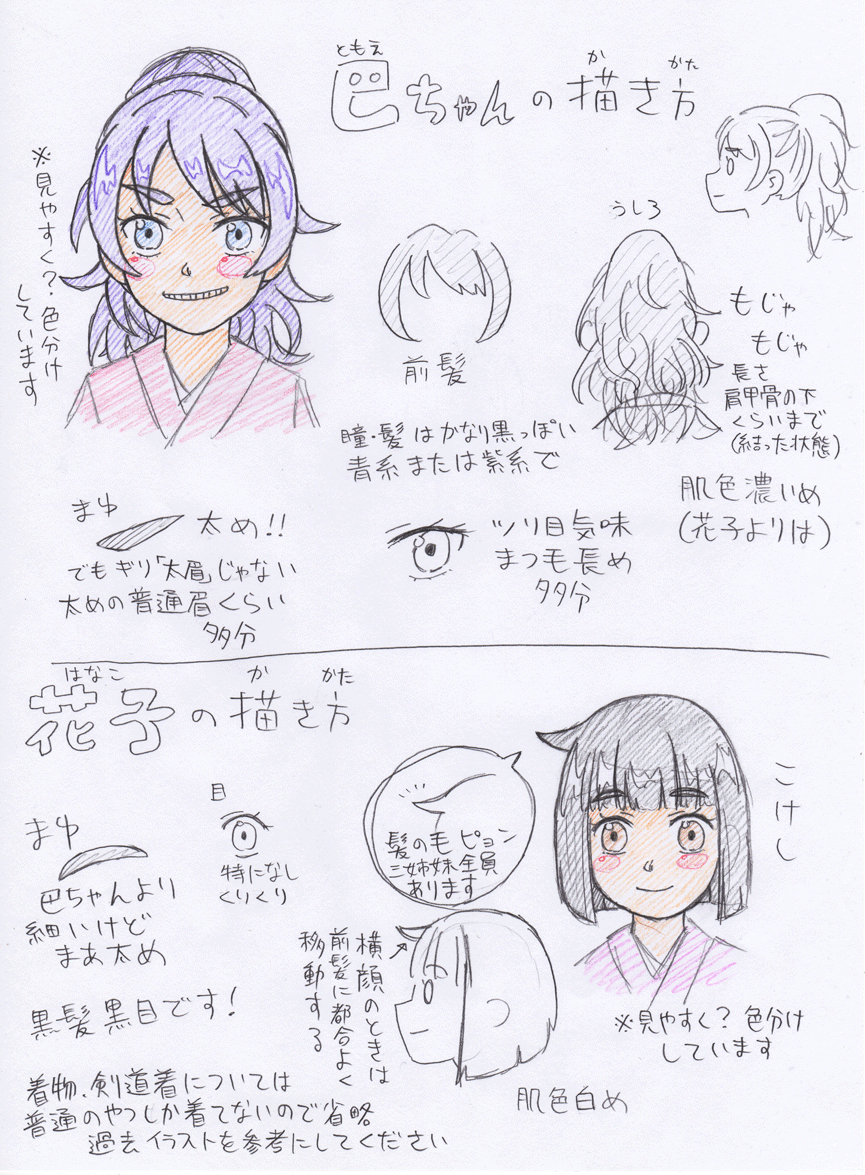 ともえ
巴ちゃんの描き方
か
かた
※見やすく?色分け
しています
前髪
うしろ
もじゃ
もじゃ
長さ
肩甲骨の下
くらいまで
(結った状態)
瞳・髪はかなり黒っぽい
青系または紫系で
肌色濃いめ
(花子よりは)
まゆ
太め!!
でもギリ「太眉」じゃない
太めの普通眉くらい
多分
ツリ目気味
まつ毛長め
多分
はなこ
か
かた
花子の描き方
まゆ
巴ちゃんより
細いけど
まあ太め
目
特になし
くりくり
髪の毛ピョン
三姉妹全員
あります
こけし
横顔のときは
前髪に都合よく
移動する
黒髪黒目です!
※見やすく?色分け
しています
肌色白め
着物、剣道着については
普通のやつしか着てないので省略
過去イラストを参考にしてください